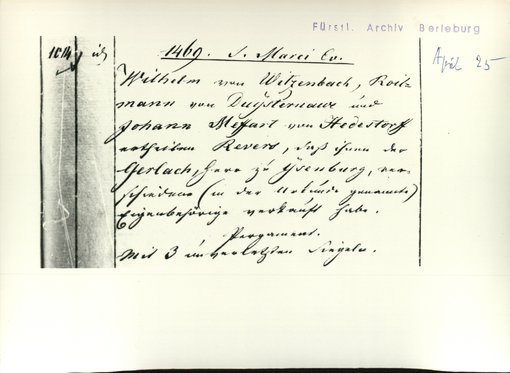 Fürstl. Archiv Berleburg
April 25
1614
1469. S. Marci Ev.
Wilhelm von Witzenbach, Roitz-
mann von Duysternaue und
Johann Meffart von Hedestorff
ertheilen Revers, daß ihnen der
Gerlach, Herr zu Ysenburg, ver-
schiedene (in der Urkunde genannte)
Eigenbehörige verkauft habe.
Pergament.
Mit 3 unverletzten Siegeln.